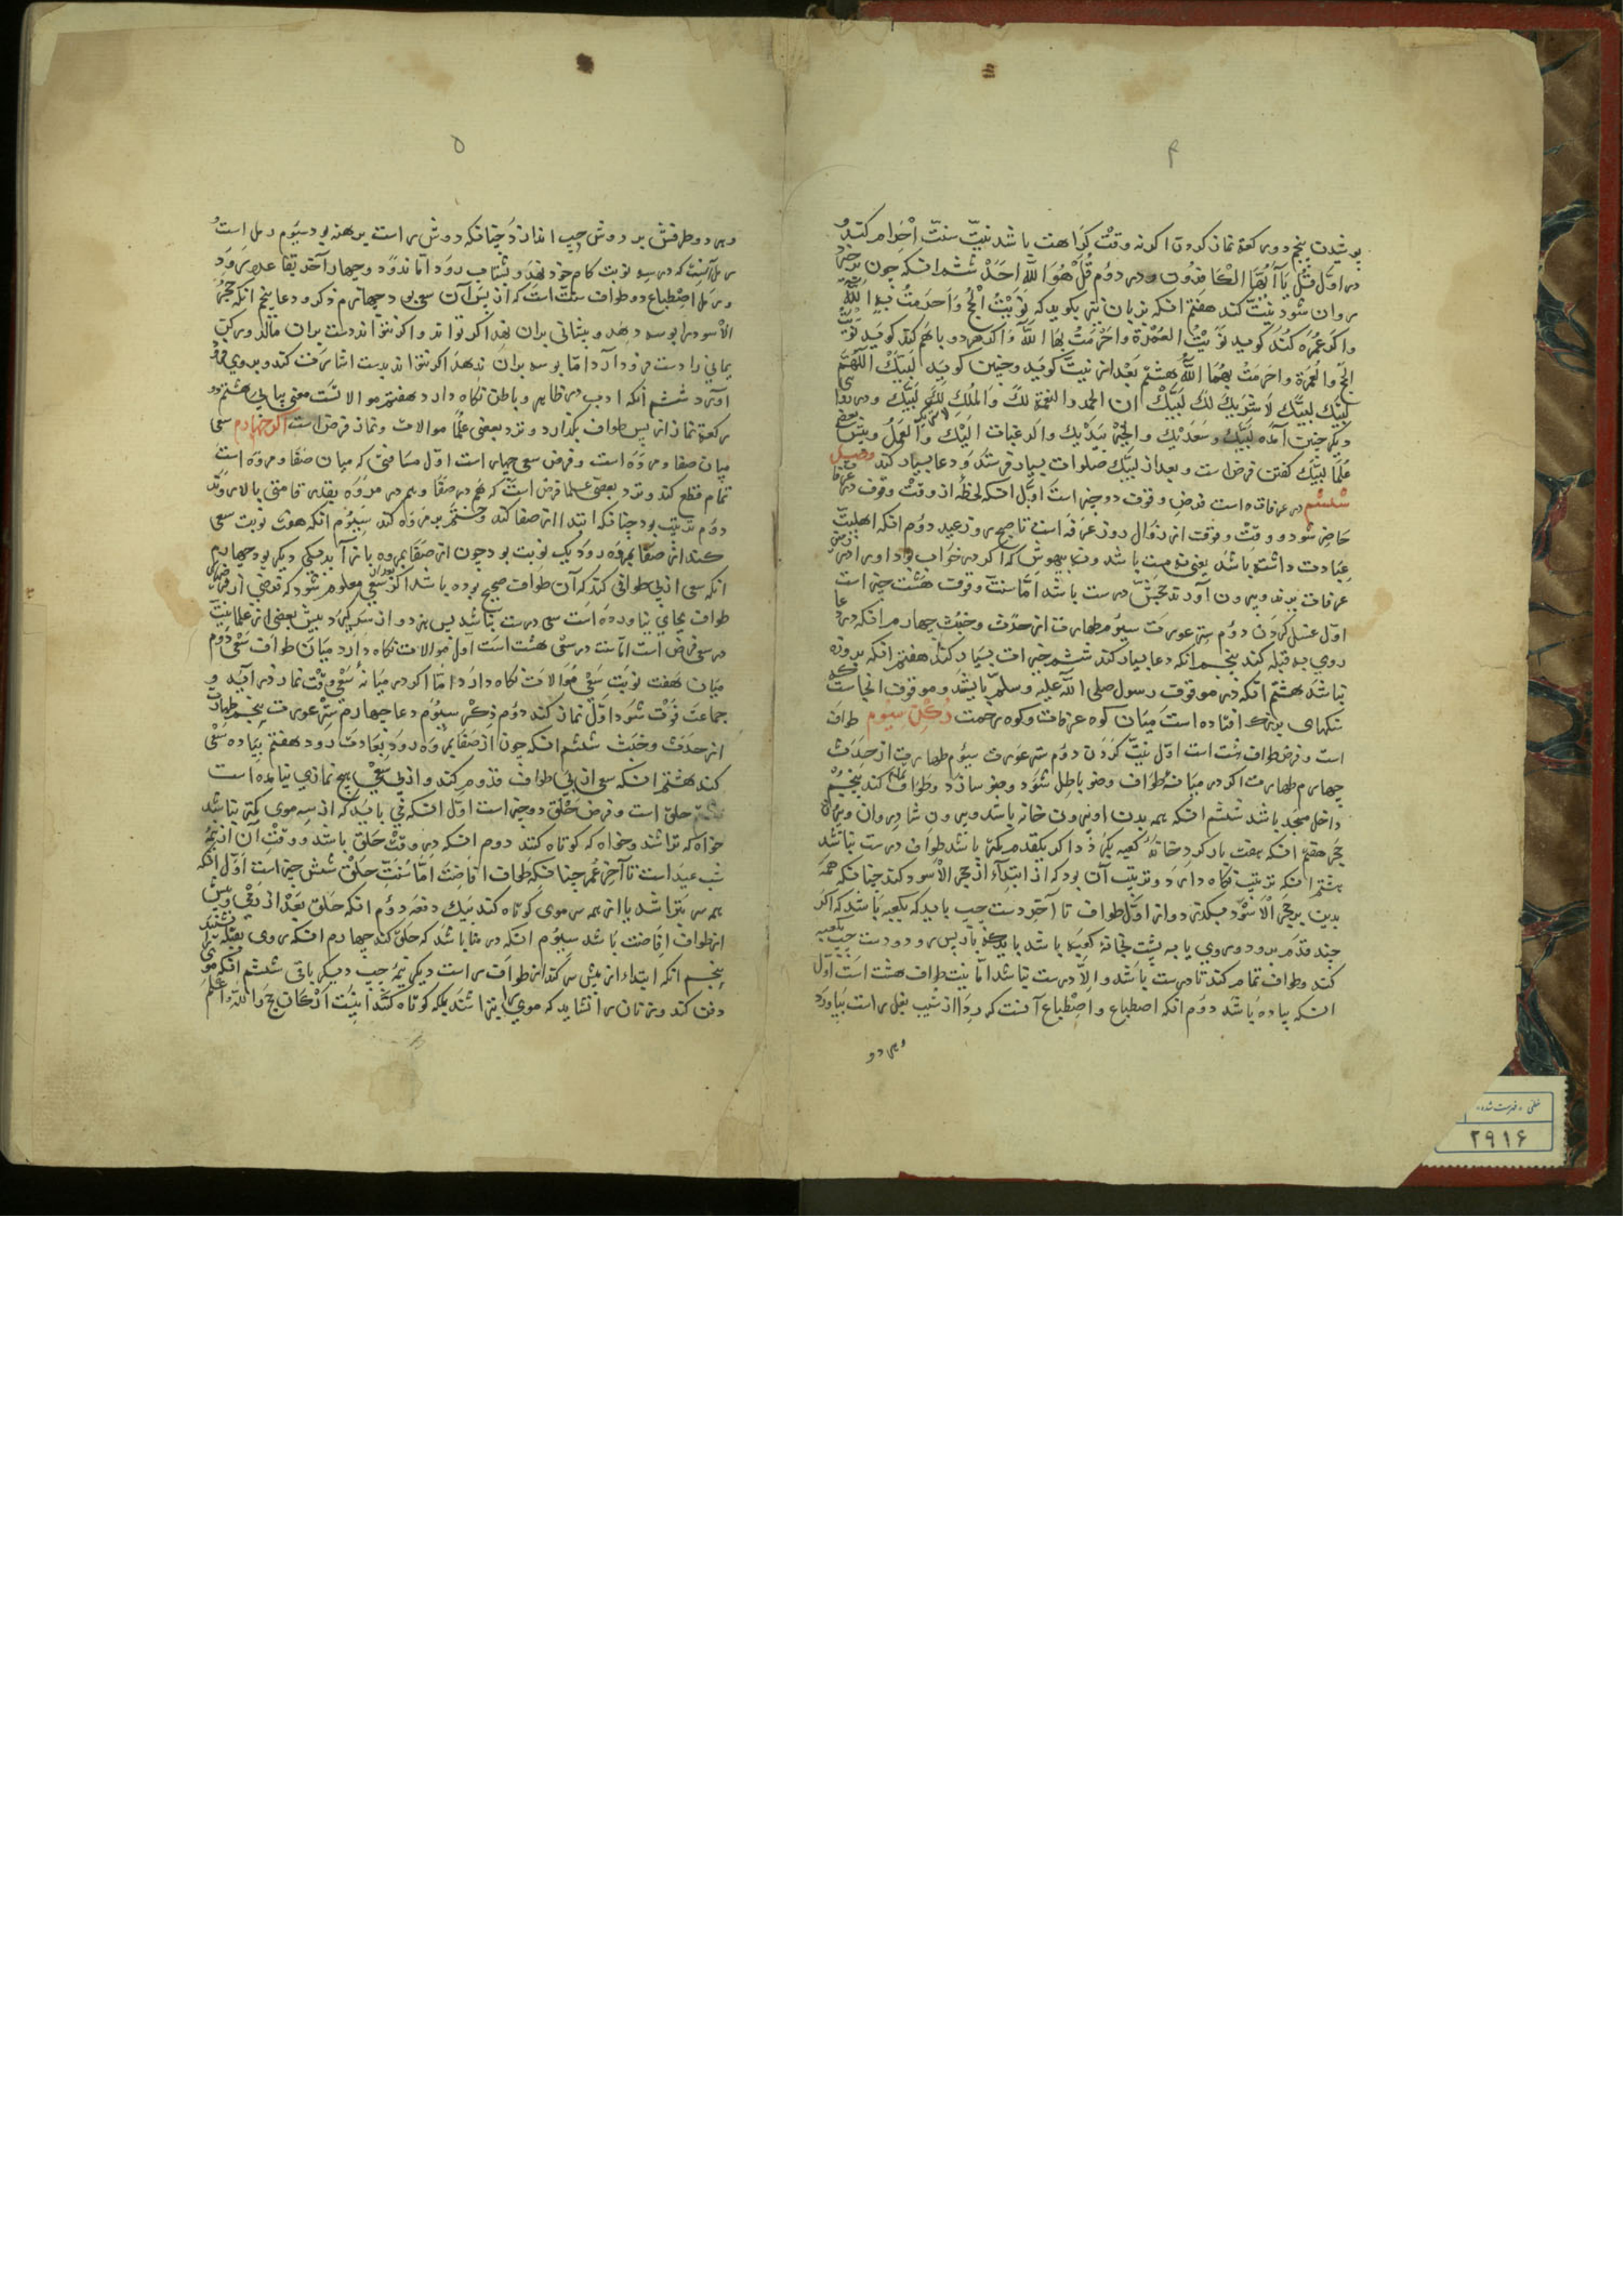 ۴
پوشیدن پنجم دو رکعة نماز کردن اگر نه وقت کراهت باشد نیت سنت احرام کند و
در اول قل یا ایها الکافرون و در دوم قل هو الله احد ششم انکه چون
روان شود نیت کند هفتم انکه بزبان نیز بکوید که نویت الحج و احرمت به الله
و اکر عمره کند کوید نویت العمرة و احرمت بها الله و اکر هر دو باهم کند کوید نویت
الحج و العمرة و احرمت بهما الله هشتم بعد از نیت کوید و چنین کوید لبیک اللهم
لبیک لبیک لا شریک لک لبیک ان الحمد و النعمة لک و الملک لک لبیک و در
دیکر چنین آمده لبیک و سعدیک و الخیر بیدیک و الرغبات الیک و العمل و پیش بعضی
علما لبیک کفتن فرض است و بعد از لبیک صلوات بسیار فرستد و دعا بسیار کند
در عرفات است فرض وقوف دو چیز است اول انکه لحظه از وقت وقوف در عرفات
حاضر شود و وقت وقوف از زوال روز عرفه است تا صبح روز عید دوم انکه اهلیت
عبادت داشته باشد یعنی نه مست باشد و نه بیهوش که اکر در خواب بود او را در
عرفات برند و بیرون آورند حجش درست باشد اما سنت وقوف هشت چیز است
اول غسل کردن دوم ستر عورت سیوم طهارت از حدث و خبث چهارم انکه در دعا
روی به قبله کند پنجم انکه دعا بسیار کند ششم خیرات بسیار کند هفتم انکه بروزه
نباشد هشتم انکه در موقف رسول صلی الله علیه و سلم بایستد و موقف انجاست که
سنکهای بزرک افتاده است میان کوه عرفات و کوه رحمت رکن سیوم طواف
است و فرض طواف هشت است اول نیت کردن دوم ستر عورت سیوم طهارت از حدث
چهارم طهارت اکر در میانهٔ طواف وضو باطل شود وضو سازد و طواف تمام کند پنجم
داخل مسجد باشد ششم انکه همه بدن او بیرون خانه باشد و بیرون شادروان و بیرون
حجر هفتم انکه هفت بار کرد خانهٔ کعبه بکردد اکر یکقدم کمتر باشد طواف درست نباشد
هشتم انکه ترتیب نکاه دارد و ترتیب آن بود که از ابتدآء از حجر الاسود کند چنانکه همه
بدن بر حجر الاسود بکذرد و از اول طواف تا آخر دست چپ باید که بکعبه باشد که اکر
چند قدم برود و روی یا به پشت بخانهٔ کعبه باشد باید که باز پس رود و دست چپ بکعبه
کند و طواف تمام کند تا درست باشد و الا درست نباشد اما سنت طواف هشت است اول
انکه پیاده باشد دوم انکه اصطباع و اصطباع آنست که ردا از شیب بغل راست بیاورد
و هر دو
۵
و هر دو طرفش بر دوش چپ اندازد چنانکه دوش راست برهنه بود سیوم رمل است و
رمل آنست که در سه نوبت کام خرد نهد و بشتاب رود اما ندود و چهار آخر بقاعده رود
و رمل و اصطباع در طواف سنت است که از پس آن سعی بود چهارم ذکر و دعا پنجم انکه حجر
الاسود را بوسه دهد و پیشانی بران نهد اکر تواند و اکر نتواند دست بران مالد و رکن
یمانی را دست فرود آرد اما بوسه بران ندهد اکر نتواند بدست اشارت کند و بروی خود
آورد ششم انکه ادب در ظاهر و باطن نکاه دارد هفتم موالاتست یعنی پیاپی هشتم دو
رکعة نماز از پس طواف بکذارد و نزد بعضی علما موالات و نماز فرض است رکن چهارم سعی
میان صفا و مروه است و فرض سعی چهار است اول مسافتی که میان صفا و مروه است
تمام قطع کند و نزد بعضی علما فرض است که هم در صفا و هم در مروه بقدر قامتی بالا رود
دوم ترتیب بود چنانکه ابتدا از صفا کند و ختم بر مروه کند سیوم انکه هفت نوبت سعی
کند از صفا بمروه رود یک نوبت بود چون از صفا بمروه باز آید یکی دیکر بود چهارم
انکه سعی از پی طوافی کند که آن طواف صحیح بوده باشد اکر بعد از سعی معلوم شود که فرضی از فرض
طواف بجای نیاورده است سعی درست نباشد پس برود و از سر کیرد و پیش بعضی از علما نیت
در سعی فرض است اما سنت در سعی هشت است اول موالات نکاه دارد میان طواف و سعی دوم
میان هفت نوبت سعی موالات نکاه دارد اما اکر در میانه سعی وقت نماز در آید و
جماعت فوت شود اول نماز کند دوم ذکر سیوم دعا چهارم ستر عورت پنجم طهارت
از حدث و خبث ششم انکه چون از صفا بمروه رود بعادت رود هفتم پیاده سعی
کند هشتم انکه سعی از پی طواف قدوم کند و از پی سعی هیچ نمازی نیامده است
حلق است و فرض حلق دو چیز است اول انکه می باید که از سه موی کمتر نباشد
خواه که تراشد و خواه که کوتاه کنند دوم انکه در وقت حلق باشد و وقت آن از نیمه
شب عید است تا آخر عمر چنانکه طواف افاضت اما سنت حلق شش چیز است اول انکه
همه سر بتراشد یا از همه سر موی کوتاه کند بیک دفعه دوم انکه حلق بعد از رمی و پیش
از طواف افاضت باشد سیوم انکه در منا باشد که حلق کند چهارم انکه روی بقبله بنشیند
پنجم انکه ابتداء از پیش سر کند از طرف راست دیکر نیمهٔ چپ دیکر باقی ششم انکه موی را
دفن کند و زنان را نشاید که موی را بتراشند بلکه کوتاه کنند اینست ارکان حج و الله اعلم
خطی - فهرست شده
۲۹۱۶